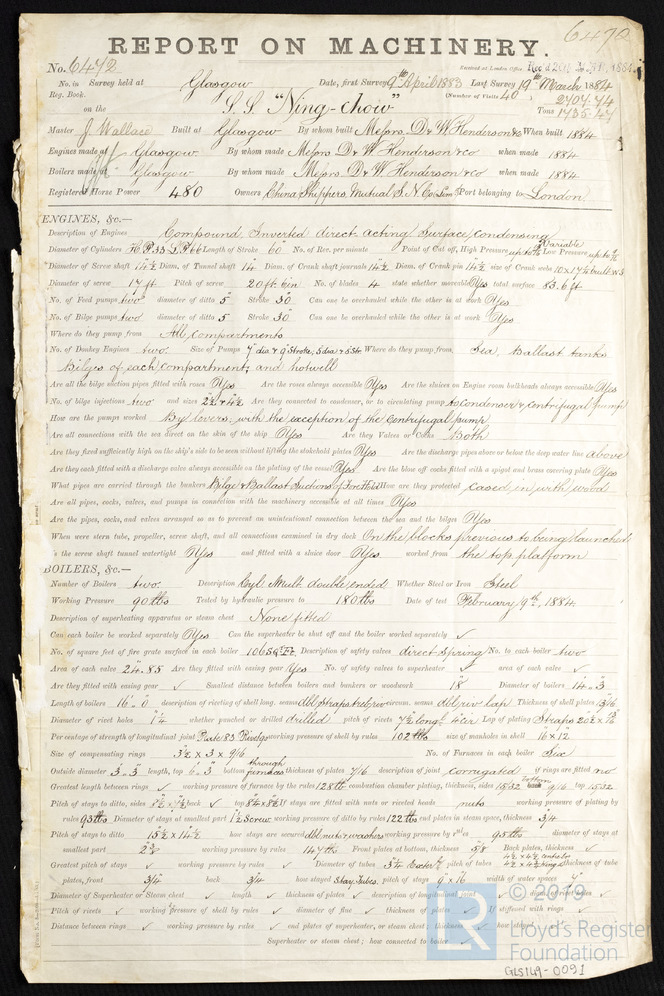 6472
REPORT ON MACHINERY.
No. 6472
Received at London Office
No. in Survey held at Glasgow Date, first Survey 9th April 1883 Last Survey 19th March 1884
Reg. Book. (Number of Visits 40)
on the S.S. "Ning-chow" Tons
Master J. Wallace Built at Glasgow By whom built Messrs. D. & W. Henderson & Co When built 1884
Engines made at Glasgow By whom made Messrs. D. & W. Henderson & Co when made 1884
Boilers made at Glasgow By whom made Messrs. D. & W. Henderson & Co when made 1884
Registered Horse Power 480 Owners China Shippers Mutual S. N. Co. Lim. Port belonging to London
ENGINES, &c.—
Description of Engines Compound Inverted direct acting Surface condensing
Diameter of Cylinders H.P. 33 L.P. 66 Length of Stroke 60 No. of Rev. per minute Point of Cut off, High Pressure Variable Low Pressure
Diameter of Screw shaft 14½ Diam. of Tunnel shaft 14 Diam. of Crank shaft journals 14½ Diam. of Crank pin 14½ size of Crank webs
Diameter of screw 17 ft Pitch of screw 20 ft. 6 in No. of blades 4 state whether moveable Yes total surface 83.6 ft
No. of Feed pumps two diameter of ditto 5 Stroke 30 Can one be overhauled while the other is at work Yes
No. of Bilge pumps two diameter of ditto 5 Stroke 30 Can one be overhauled while the other is at work Yes
Where do they pump from All compartments
No. of Donkey Engines two. Size of Pumps 7" dia & 9" Stroke, 5 dia & 8 Str. Where do they pump from Sea, Ballast tanks
Bilges of each compartment, and hotwell
Are all the bilge suction pipes fitted with roses Yes Are the roses always accessible Yes Are the sluices on Engine room bulkheads always accessible Yes
No. of bilge injections two and sizes Are they connected to condenser, or to circulating pump to Condenser & Centrifugal pump
How are the pumps worked By levers, with the exception of the Centrifugal pump
Are all connections with the sea direct on the skin of the ship Yes Are they Valves or Cocks Both
Are they fixed sufficiently high on the ship's side to be seen without lifting the stokehold plates Yes Are the discharge pipes above or below the deep water line above
Are they each fitted with a discharge valve always accessible on the plating of the vessel Yes Are the blow off cocks fitted with a spigot and brass covering plate Yes
What pipes are carried through the bunkers Bilge & Ballast Suctions of Fore Hold How are they protected cased in with wood
Are all pipes, cocks, valves, and pumps in connection with the machinery accessible at all times Yes
Are the pipes, cocks, and valves arranged so as to prevent an unintentional connection between the sea and the bilges Yes
When were stern tube, propeller, screw shaft, and all connections examined in dry dock On the blocks previous to being launched
Is the screw shaft tunnel watertight Yes and fitted with a sluice door Yes. worked from the top platform
BOILERS, &c.—
Number of Boilers two. Description Cyl. Mult. double ended Whether Steel or Iron Steel
Working Pressure 90 lbs Tested by hydraulic pressure to 180 lbs Date of test February 9th, 1884
Description of superheating apparatus or steam chest None fitted
Can each boiler be worked separately Yes Can the superheater be shut off and the boiler worked separately ✓
No. of square feet of fire grate surface in each boiler 106 Sq. Ft. Description of safety valves direct Spring No. to each boiler two
Area of each valve 24.85 Are they fitted with easing gear Yes No. of safety valves to superheater ✓ area of each valve ✓
Are they fitted with easing gear ✓ Smallest distance between boilers and bunkers or woodwork 18 Diameter of boilers 14.3
Length of boilers 16.0 description of riveting of shell long. seams dbl. straps treb. riv circum. seams dbl. riv. lap Thickness of shell plates 13/16
Diameter of rivet holes 1¼ whether punched or drilled drilled pitch of rivets Lap of plating
Per centage of strength of longitudinal joint Plate 83 working pressure of shell by rules 102 lbs size of manholes in shell 16 x 12
Size of compensating rings 3½ x 3 x 9/16 No. of Furnaces in each boiler Six
Outside diameter 3.3 length, top 6.3 bottom through furnaces thickness of plates 7/16 description of joint corrugated if rings are fitted no
Greatest length between rings ✓ working pressure of furnace by the rules 128 lbs combustion chamber plating, thickness, sides 15/32 bottom back 9/16 top 15/32
Pitch of stays to ditto, sides back ✓ top If stays are fitted with nuts or riveted heads nuts working pressure of plating by
rules 93 lbs Diameter of stays at smallest part working pressure of ditto by rules 122 lbs end plates in steam space, thickness 3/4
Pitch of stays to ditto 15½ x 14½ how stays are secured dbl. nuts & washers working pressure by rules 95 lbs diameter of stays at
smallest part working pressure by rules 147 lbs Front plates at bottom, thickness 5/8 Back plates, thickness ✓
Greatest pitch of stays ✓ working pressure by rules ✓ Diameter of tubes pitch of tubes thickness of tube
plates, front 3/4 back 3/4 how stayed Stay Tubes. pitch of stays 9 x 16 width of water spaces
Diameter of Superheater or Steam chest ✓ length ✓ thickness of plates ✓ description of longitudinal joint ✓ diam. of rivet holes ✓
Pitch of rivets ✓ working pressure of shell by rules ✓ diameter of flue ✓ thickness of plates ✓ If stiffened with rings ✓
Distance between rings ✓ working pressure by rules ✓ end plates of superheater, or steam chest; thickness ✓ how stayed
Superheater or steam chest; how connected to boiler ✓
LR
© 2019
Lloyd's Register
Foundation
GLS149-0091